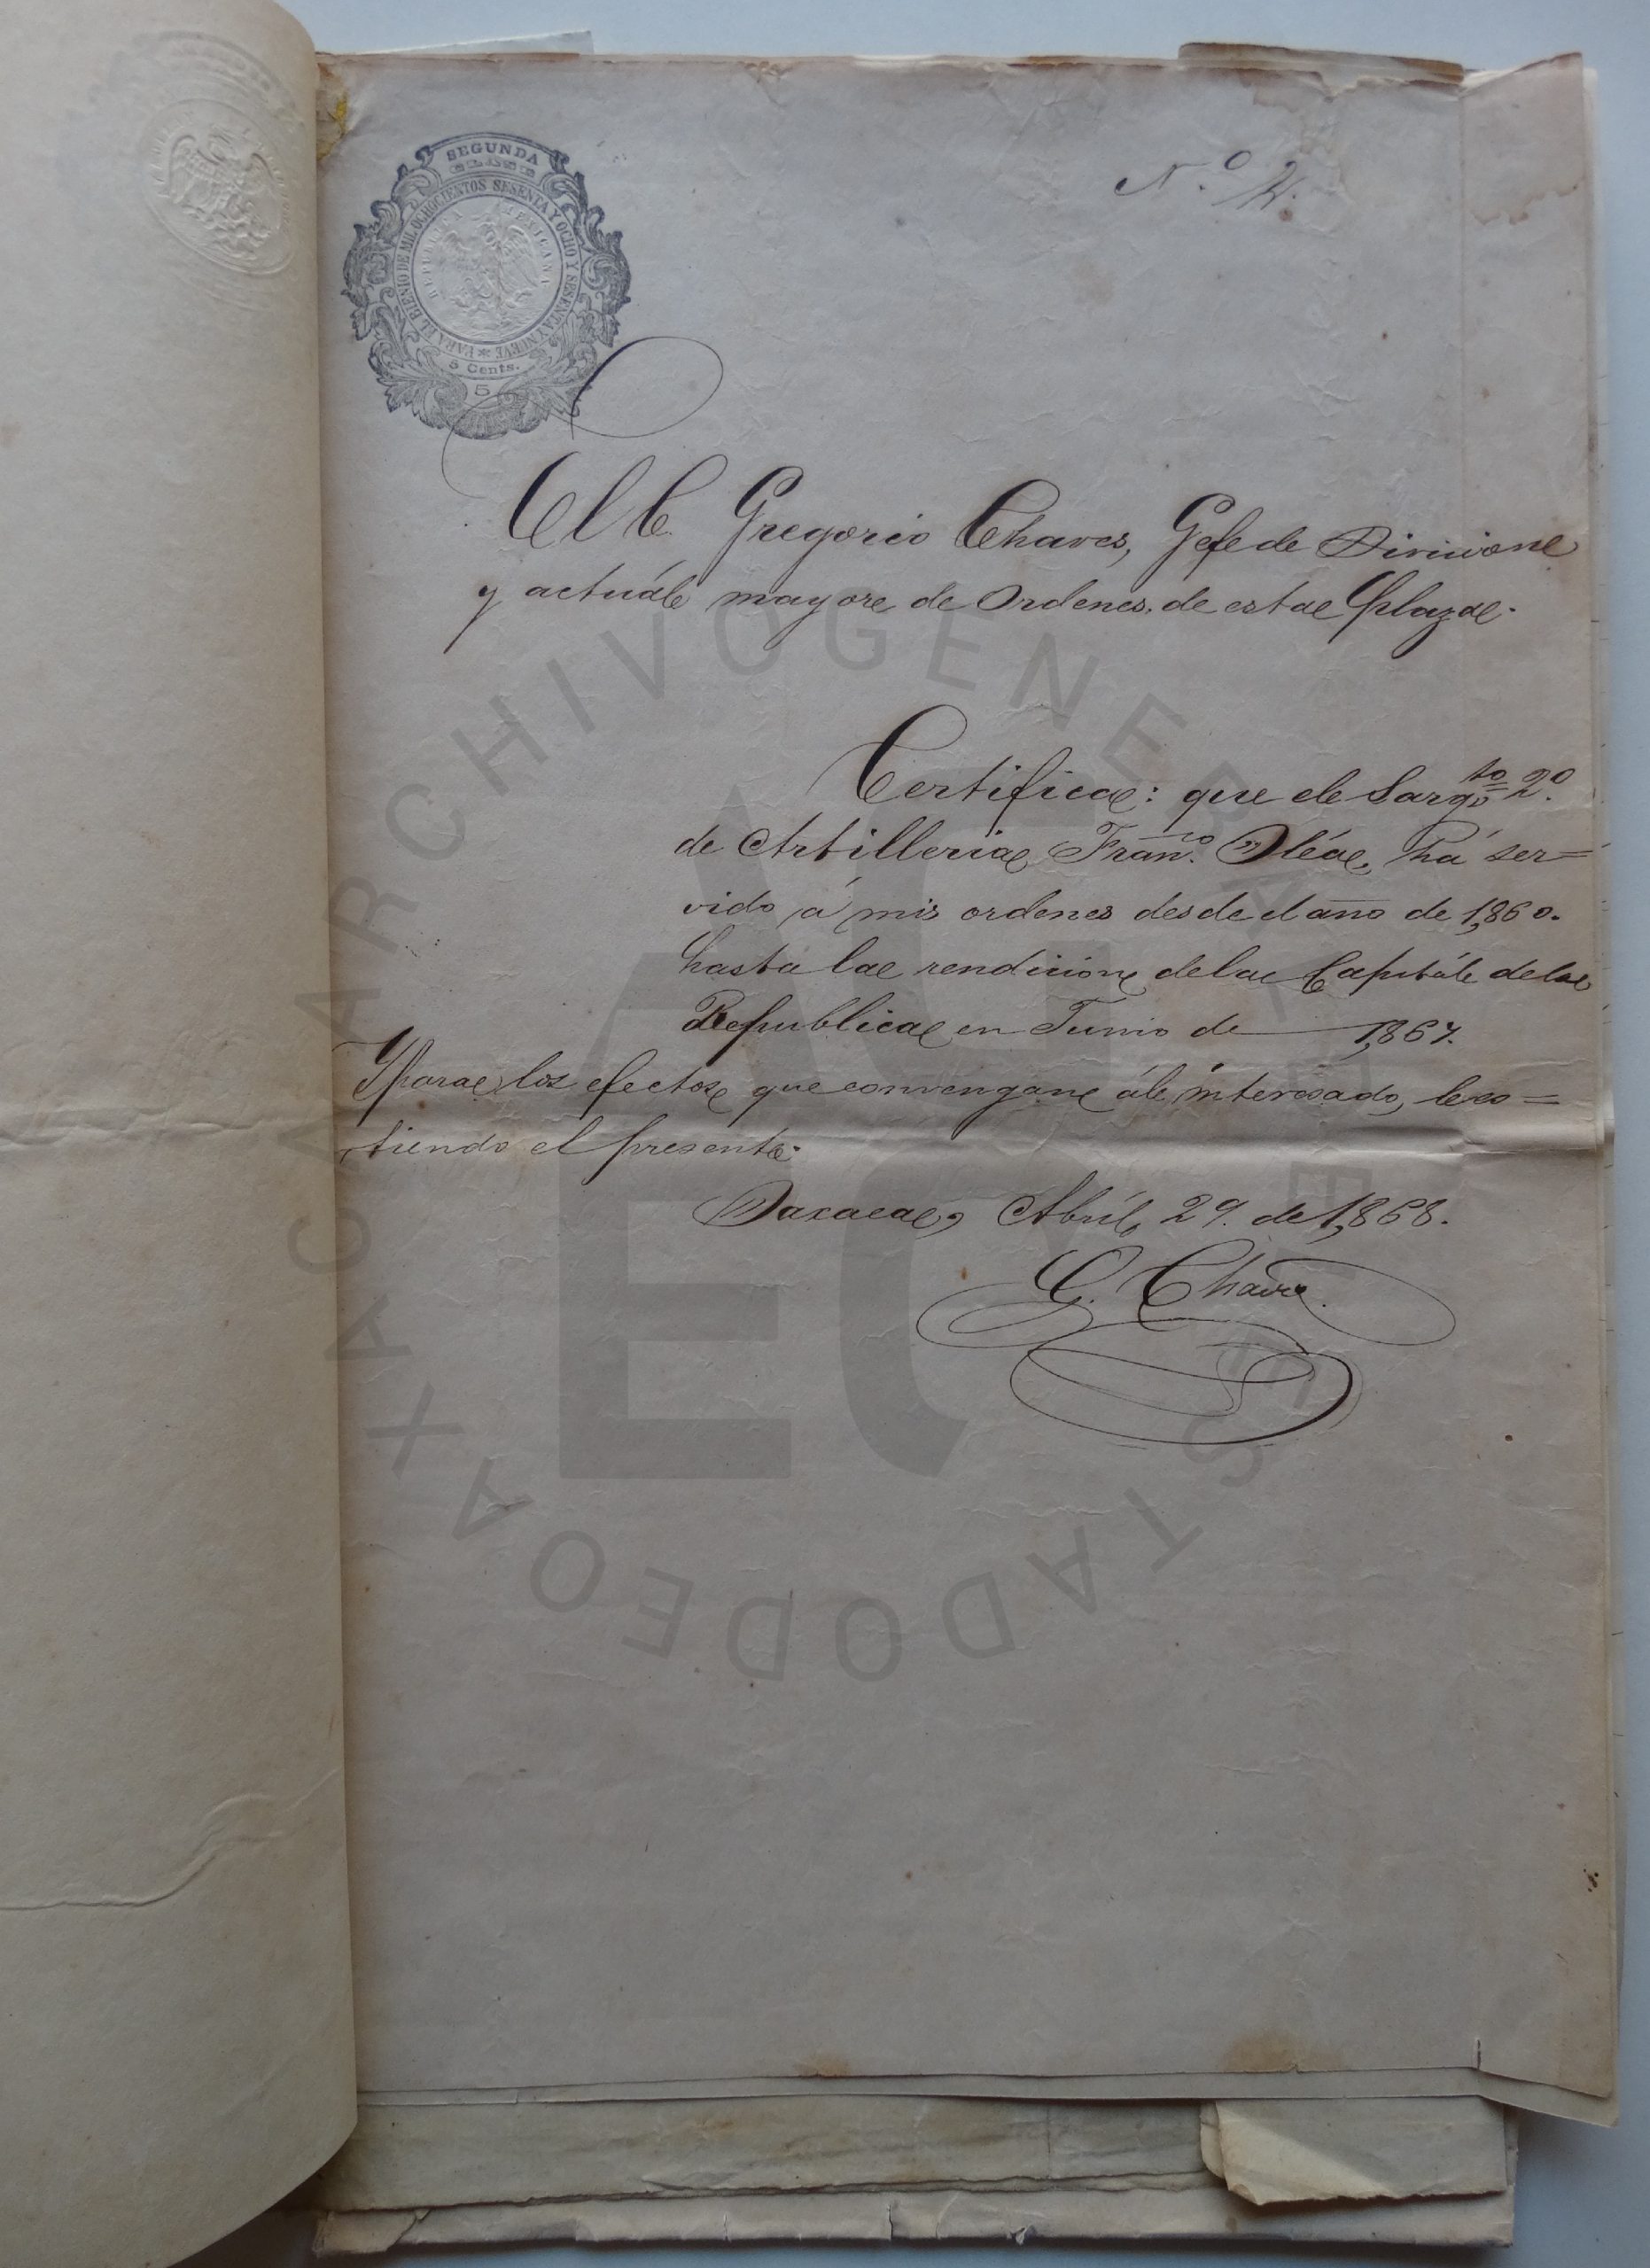 SEGUNDA
PARA EL BIENIO DE MIL OCHOCIENTOS SESENTA Y OCHO Y SESENTA Y NUEVE
REPUBLICA MEXICANA
5 Cents.
5
N.º
El C. Gregorio Chaves, Gefe de Divicion
y actuál mayor de Ordenes de esta Plaza.
Certifica: que el Sargto 2º.
de Artilleria Franco. Oléa, há ser=
vido á mis ordenes desde el año de 1,860.
hasta la rendicion de la Capitál de la
Republica en Junio de 1,867.
Y para los efectos que convengan ál interesado, le es=
tiendo el presente.
Oaxaca, Abríl, 29. de 1,868.
G. Chaves.
ARCHIVO GENERAL DEL ESTADO DE OAXACA
AGEO